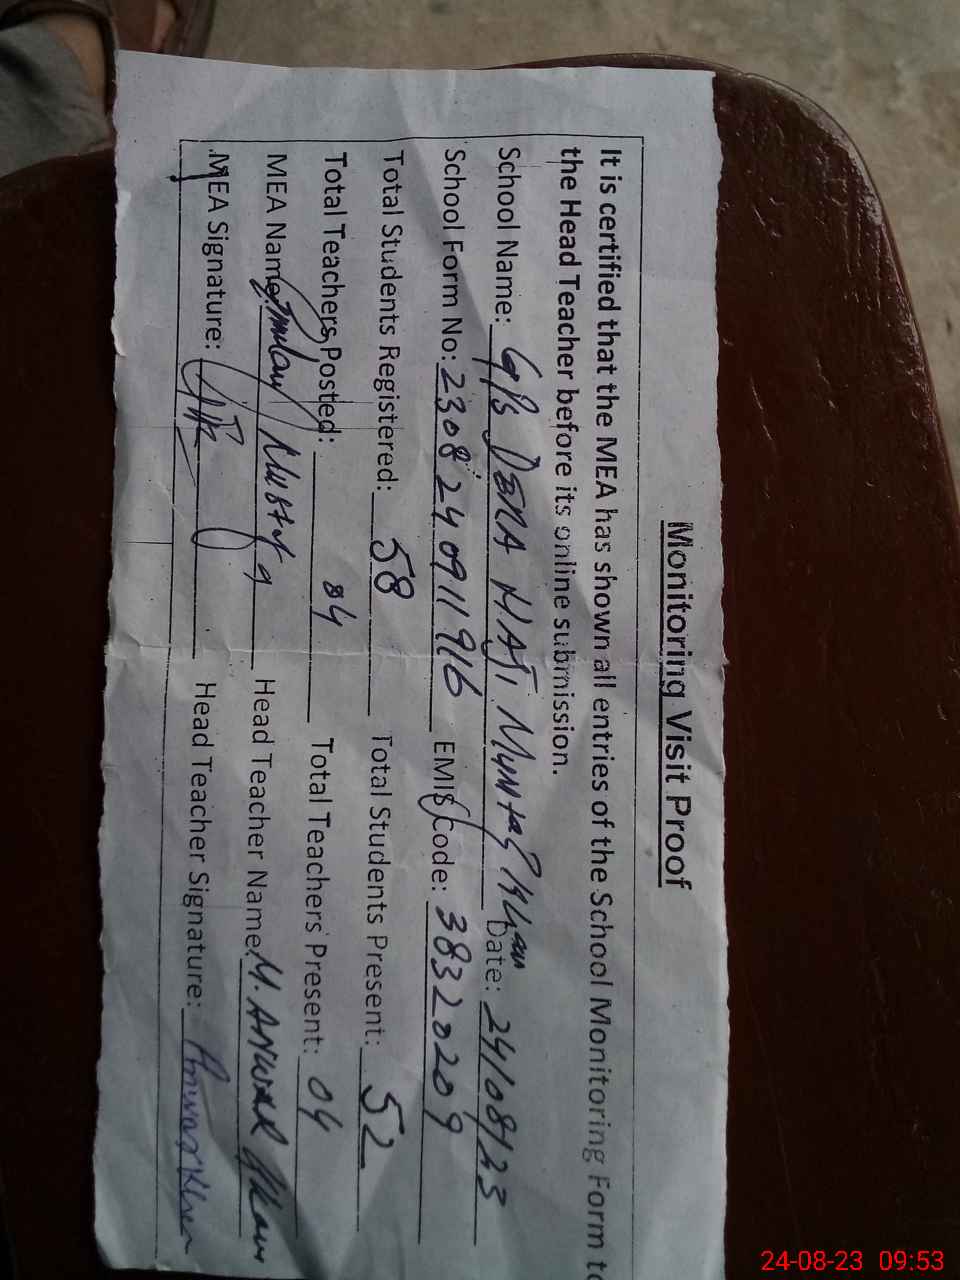 Monitoring Visit Proof
It is certified that the MEA has shown all entries of the School Monitoring Form to
the Head Teacher before its online submission.
School Name: G/B DERA HAJI Mumtaz Khan Date: 24/08/23
School Form No: 23082409 11916 EMIS Code: 38320209
Total Students Registered: 58 Total Students Present: 52
Total Teachers Posted: 04 Total Teachers Present: 04
MEA Name: Ghulam Mustafa Head Teacher Name: M. ANWAR Khan
MEA Signature: Head Teacher Signature: Anwar Khan
24-08-23 09:53